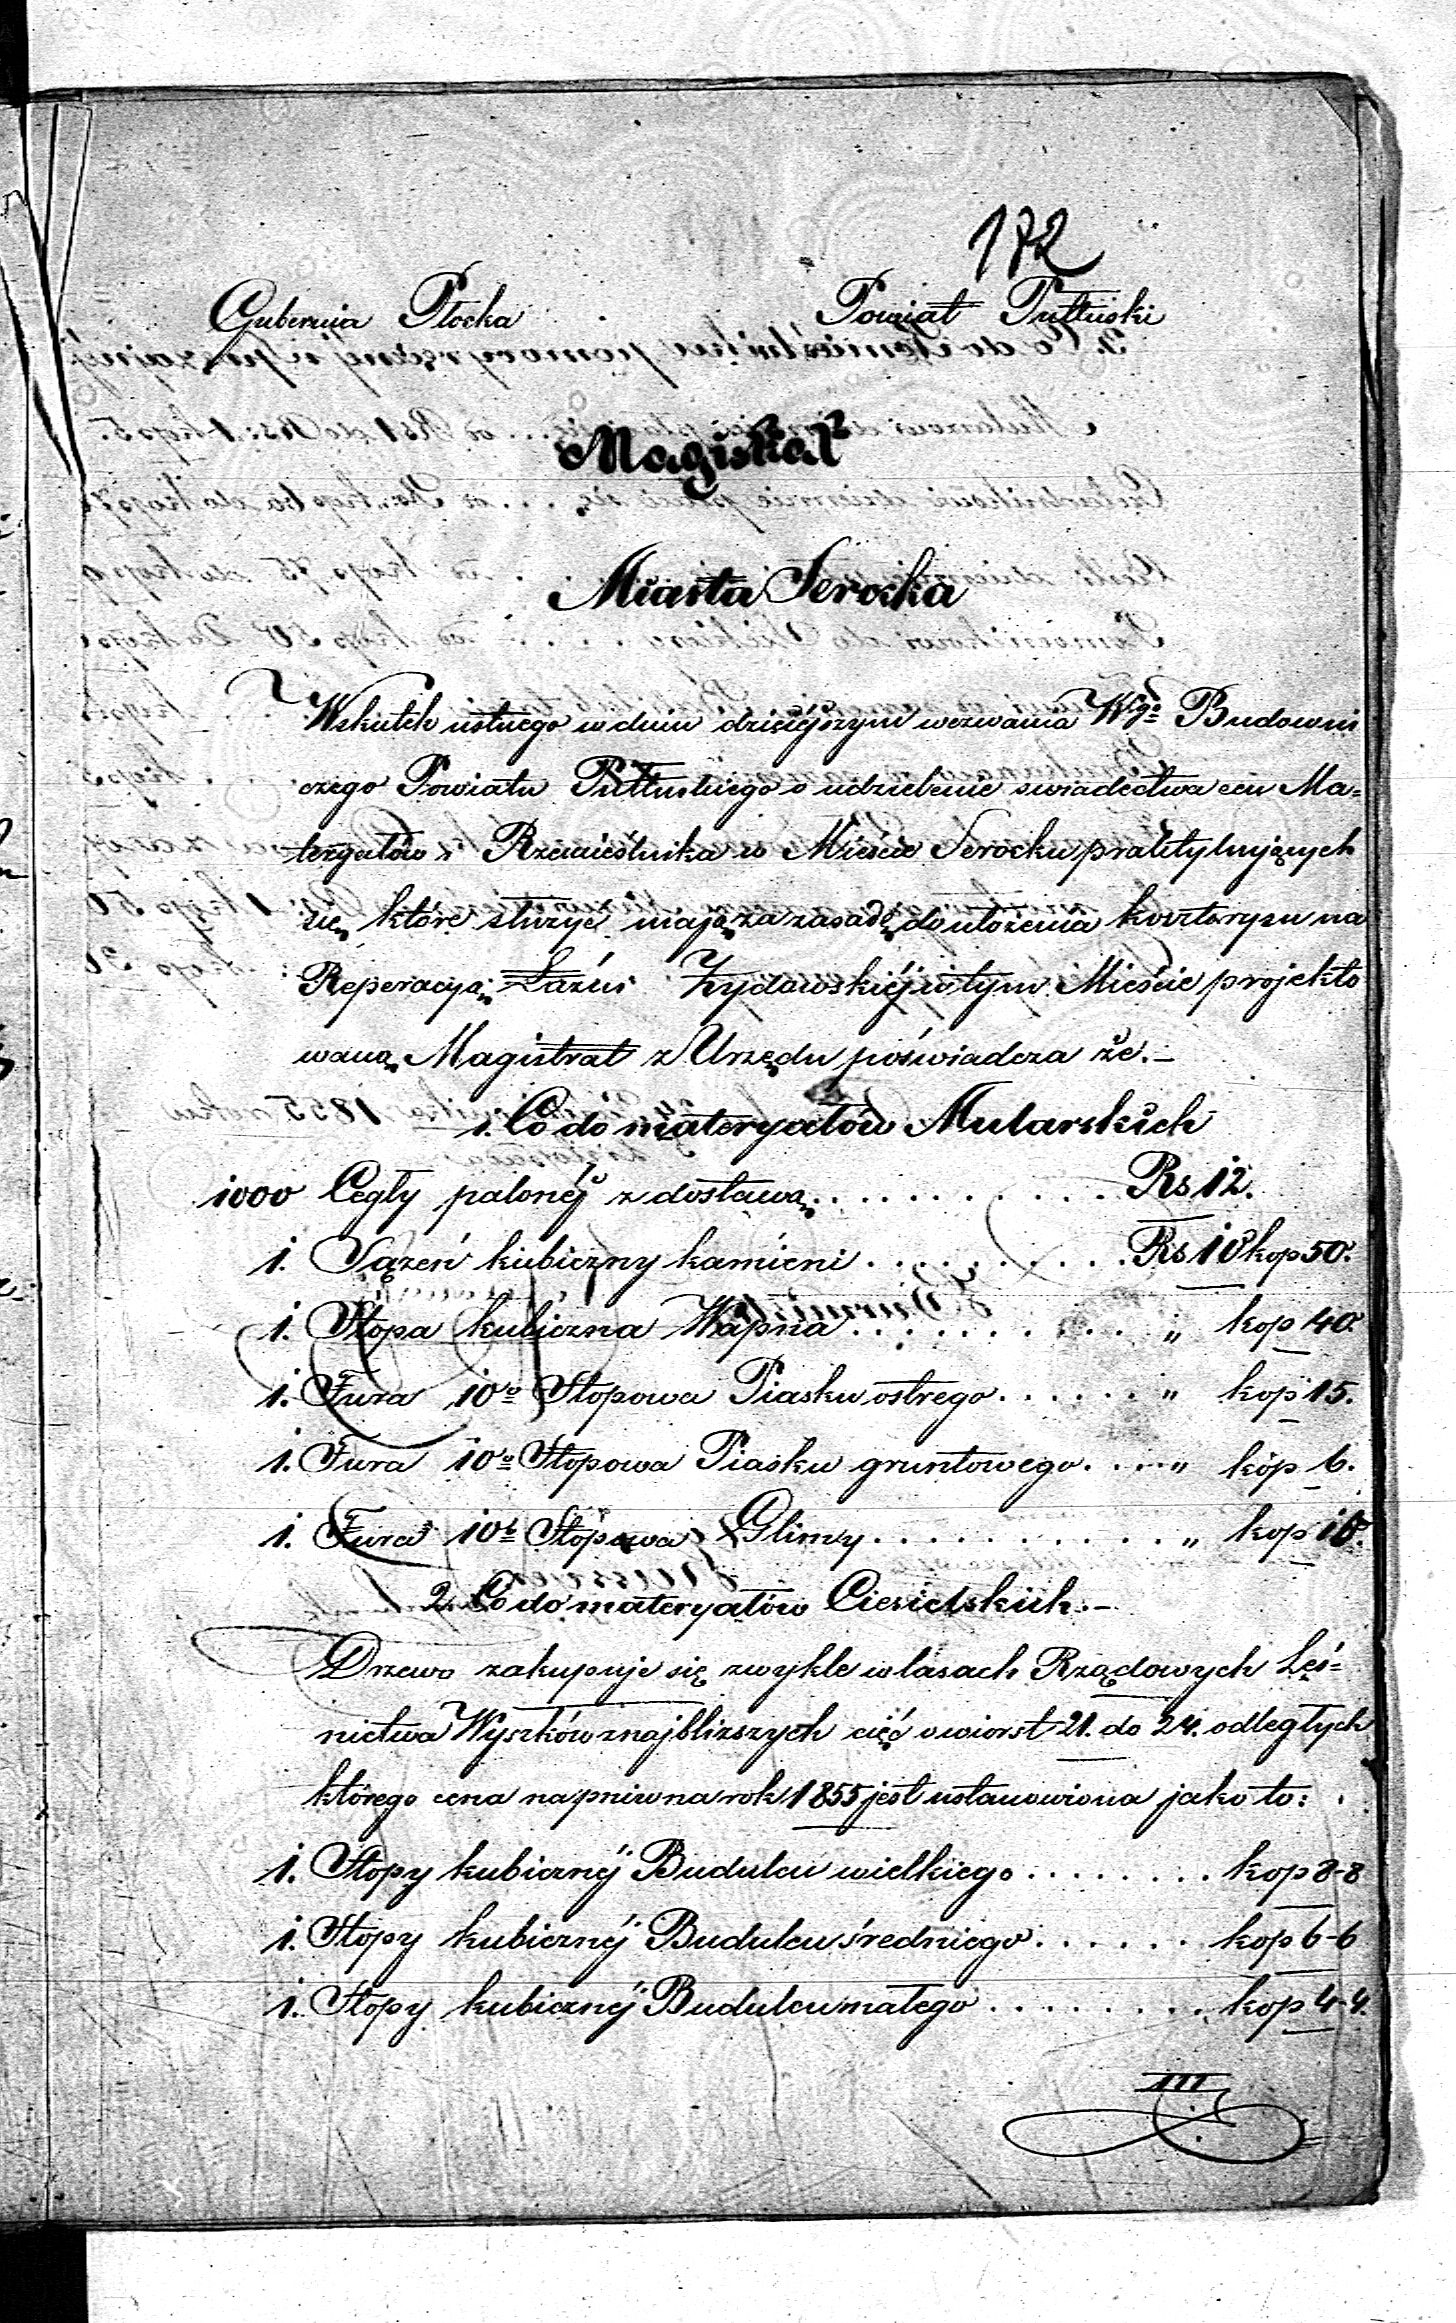 172
Gubernija Płocka Powiat Pułtuski
Magistrat
Miasta Serocka
Wskutek ustnego w dniu dzisiéjszym wezwania Wgo Budowni
czego Powiatu Pułtuskiego o udzielenie swiadectwa cen Ma=
teryałów i Rzemieślnika w Mieście Serocku praktykujących
się, które służyć mają za zasadę do ułożenia kosztorysu na
Reperacyą Łaźni Żydowskiéj w tym Mieście projekto
waną, Magistrat z Urzędu poświadcza że.–
1. Co do materyałów Mularskich
1000 Cegły palonéj z dostawą . . . . . . . . . . . Rs 12.
1. Sążeń kubiczny kamieni . . . . . . . . . . Rs 10 kop 50.
1. Stopa kubiczna Wapna . . . . . . . . . . . „ kop 40.
1. Fura 10o Stopowa Piasku ostrego . . . . . . „ kop 15.
1. Fura 10o Stopowa Piasku gruntowego . . . . „ kop 6.
1. Fura 10o Stopowa Gliny . . . . . . . . . . . „ kop 10.
2. Co do materyałów Ciesielskich.–
Drzewo zakupuje się zwykle w lasach Rządowych Leś=
nictwa Wyszków z najbliższych cięć o wiorst 21. do 24. odległych
którego cena na pniu na rok 1855 jest ustanowiona jako to:
1. Stopy kubicznéj Budulcu wielkiego . . . . . . . . kop 8-8
1. Stopy kubicznéj Budulcu średniego . . . . . . kop 6-6
1. Stopy kubicznéj Budulcu małego . . . . . . . . . kop 4-4.